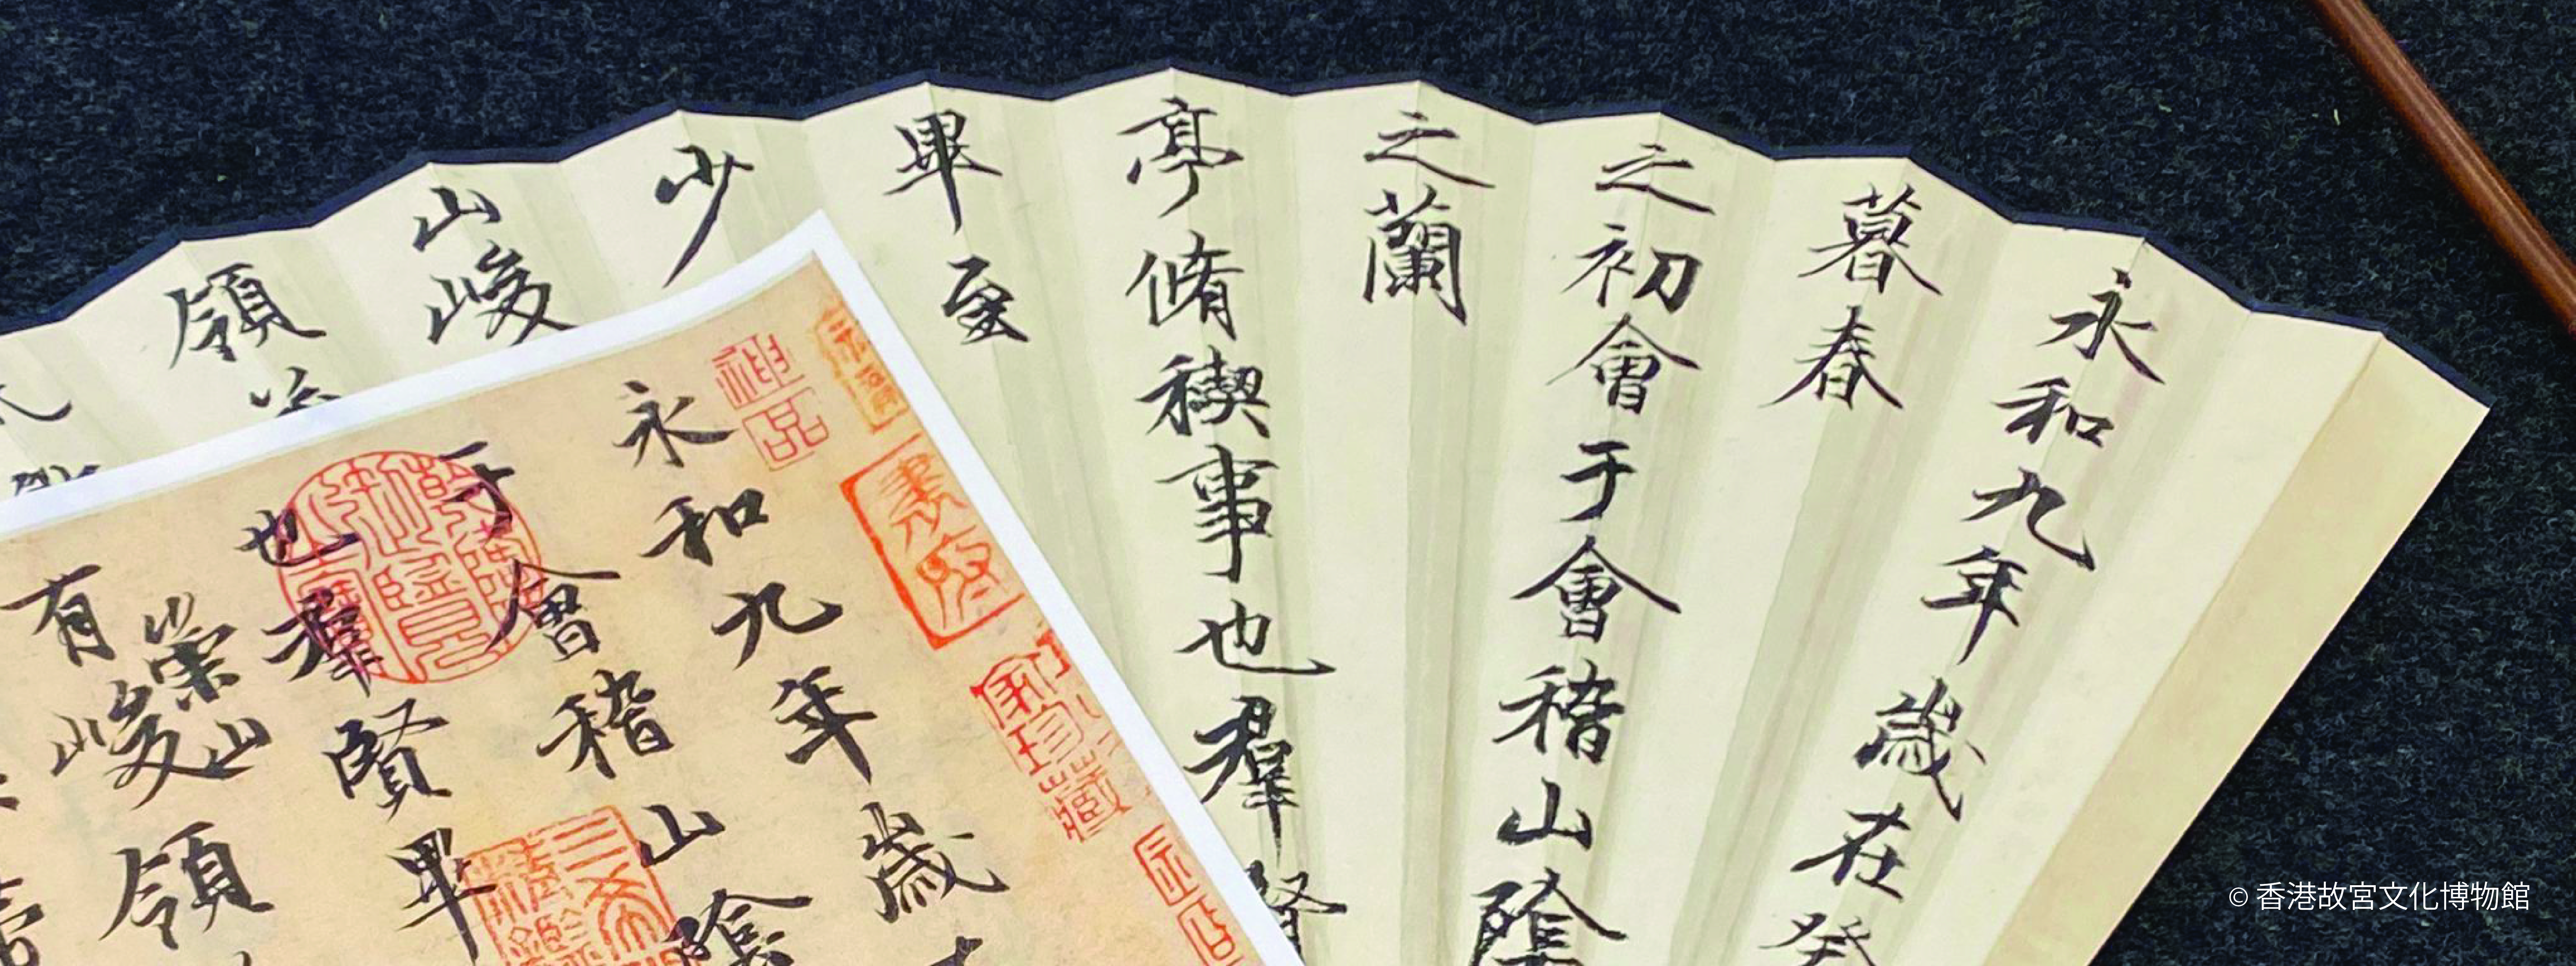 永和九年歲在癸
暮春
之初會于會稽山陰
之蘭
亭脩禊事也羣賢
畢至
少
山峻
領
神品
永和九年歲
于會稽山陰
也羣賢畢
崇山
有峻領
© 香港故宮文化博物館